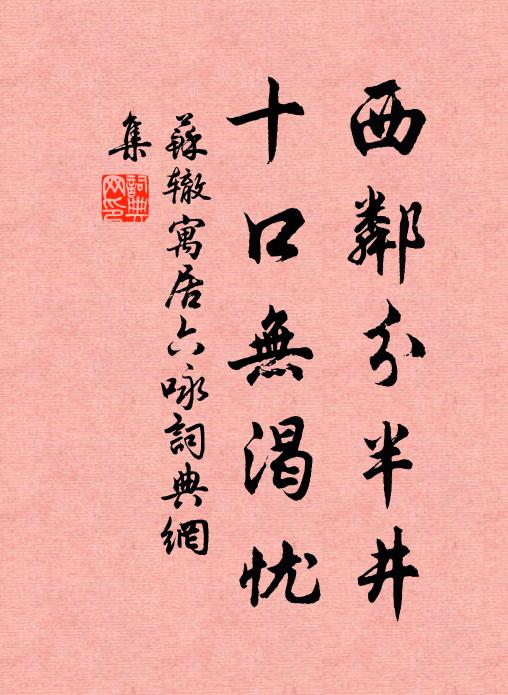 西鄰分半井
十口無渴忧
蘇辙寓居六咏詞典網
集
詞典
网印